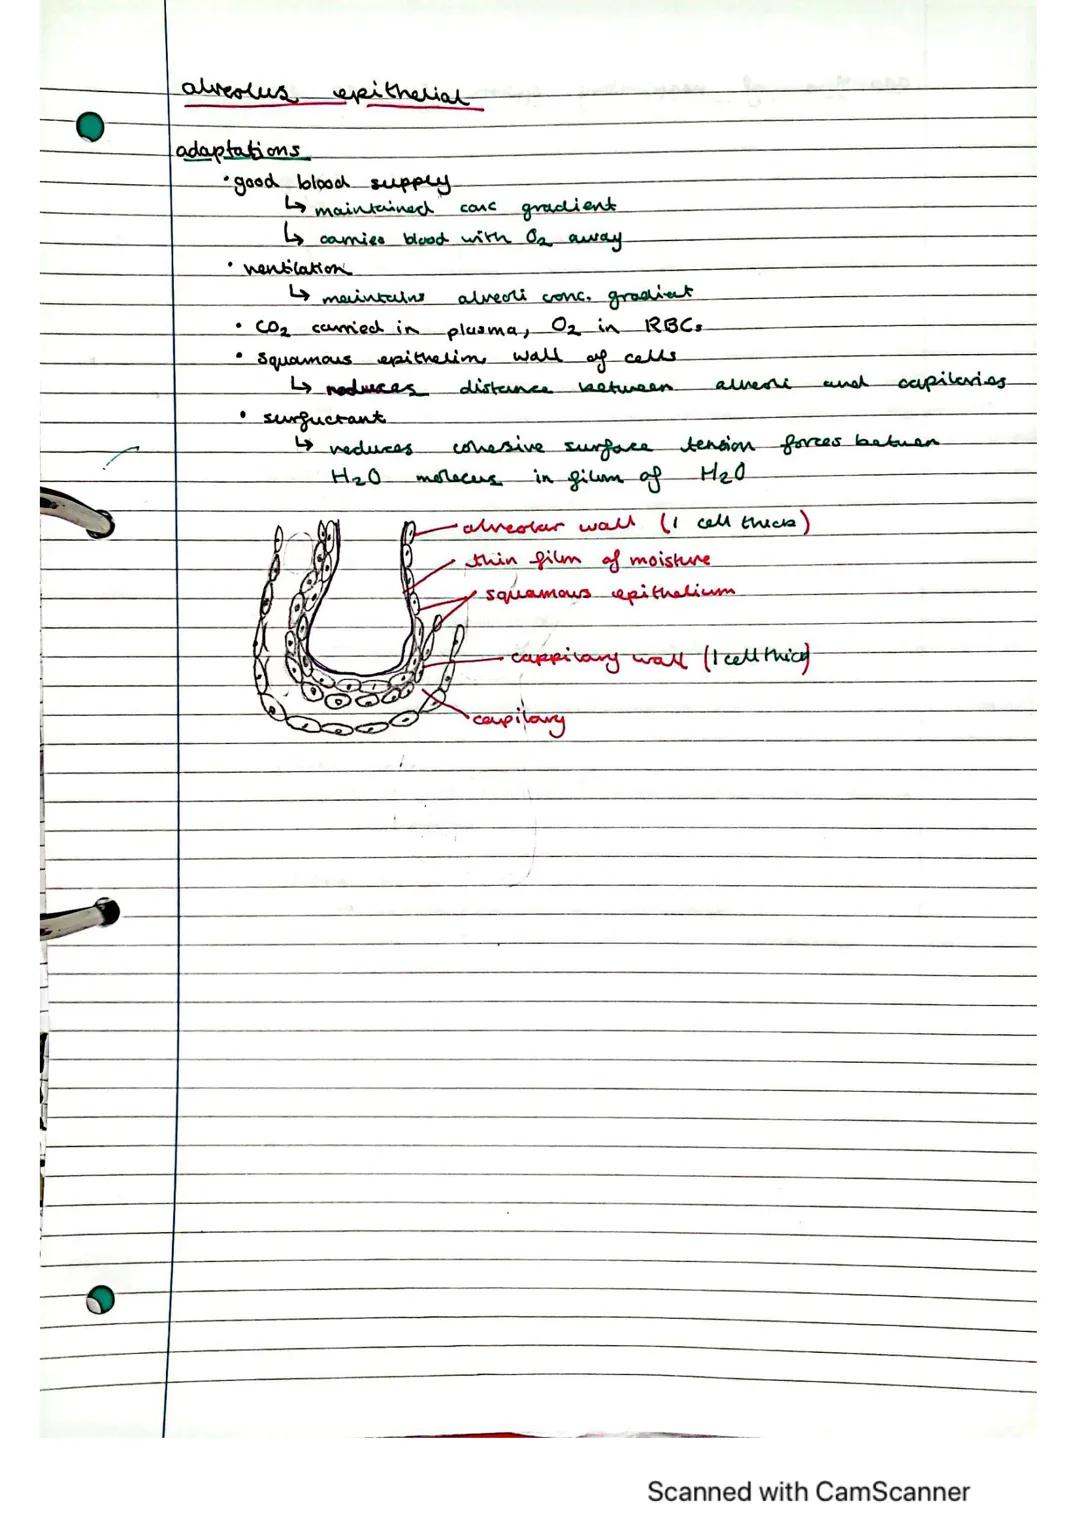 alveolus epithelial
adaptations
• good blood supply
↳ maintained conc gradient
↳ carries blood with O₂ away
• ventilation
↳ maintains alveoli conc. gradient
• CO₂ carried in plasma, O₂ in RBCs
• squamous epithelim wall of cells
↳ reduces distance between alveoli and capilaries
• surfuctant
↳ reduces cohesive surface tension forces between
H₂O molecus in film of H₂O
alveolar wall (1 cell thick)
thin film of moisture
squamous epithelium
cappilary wall (1 cell thick)
capilary
Scanned with CamScanner